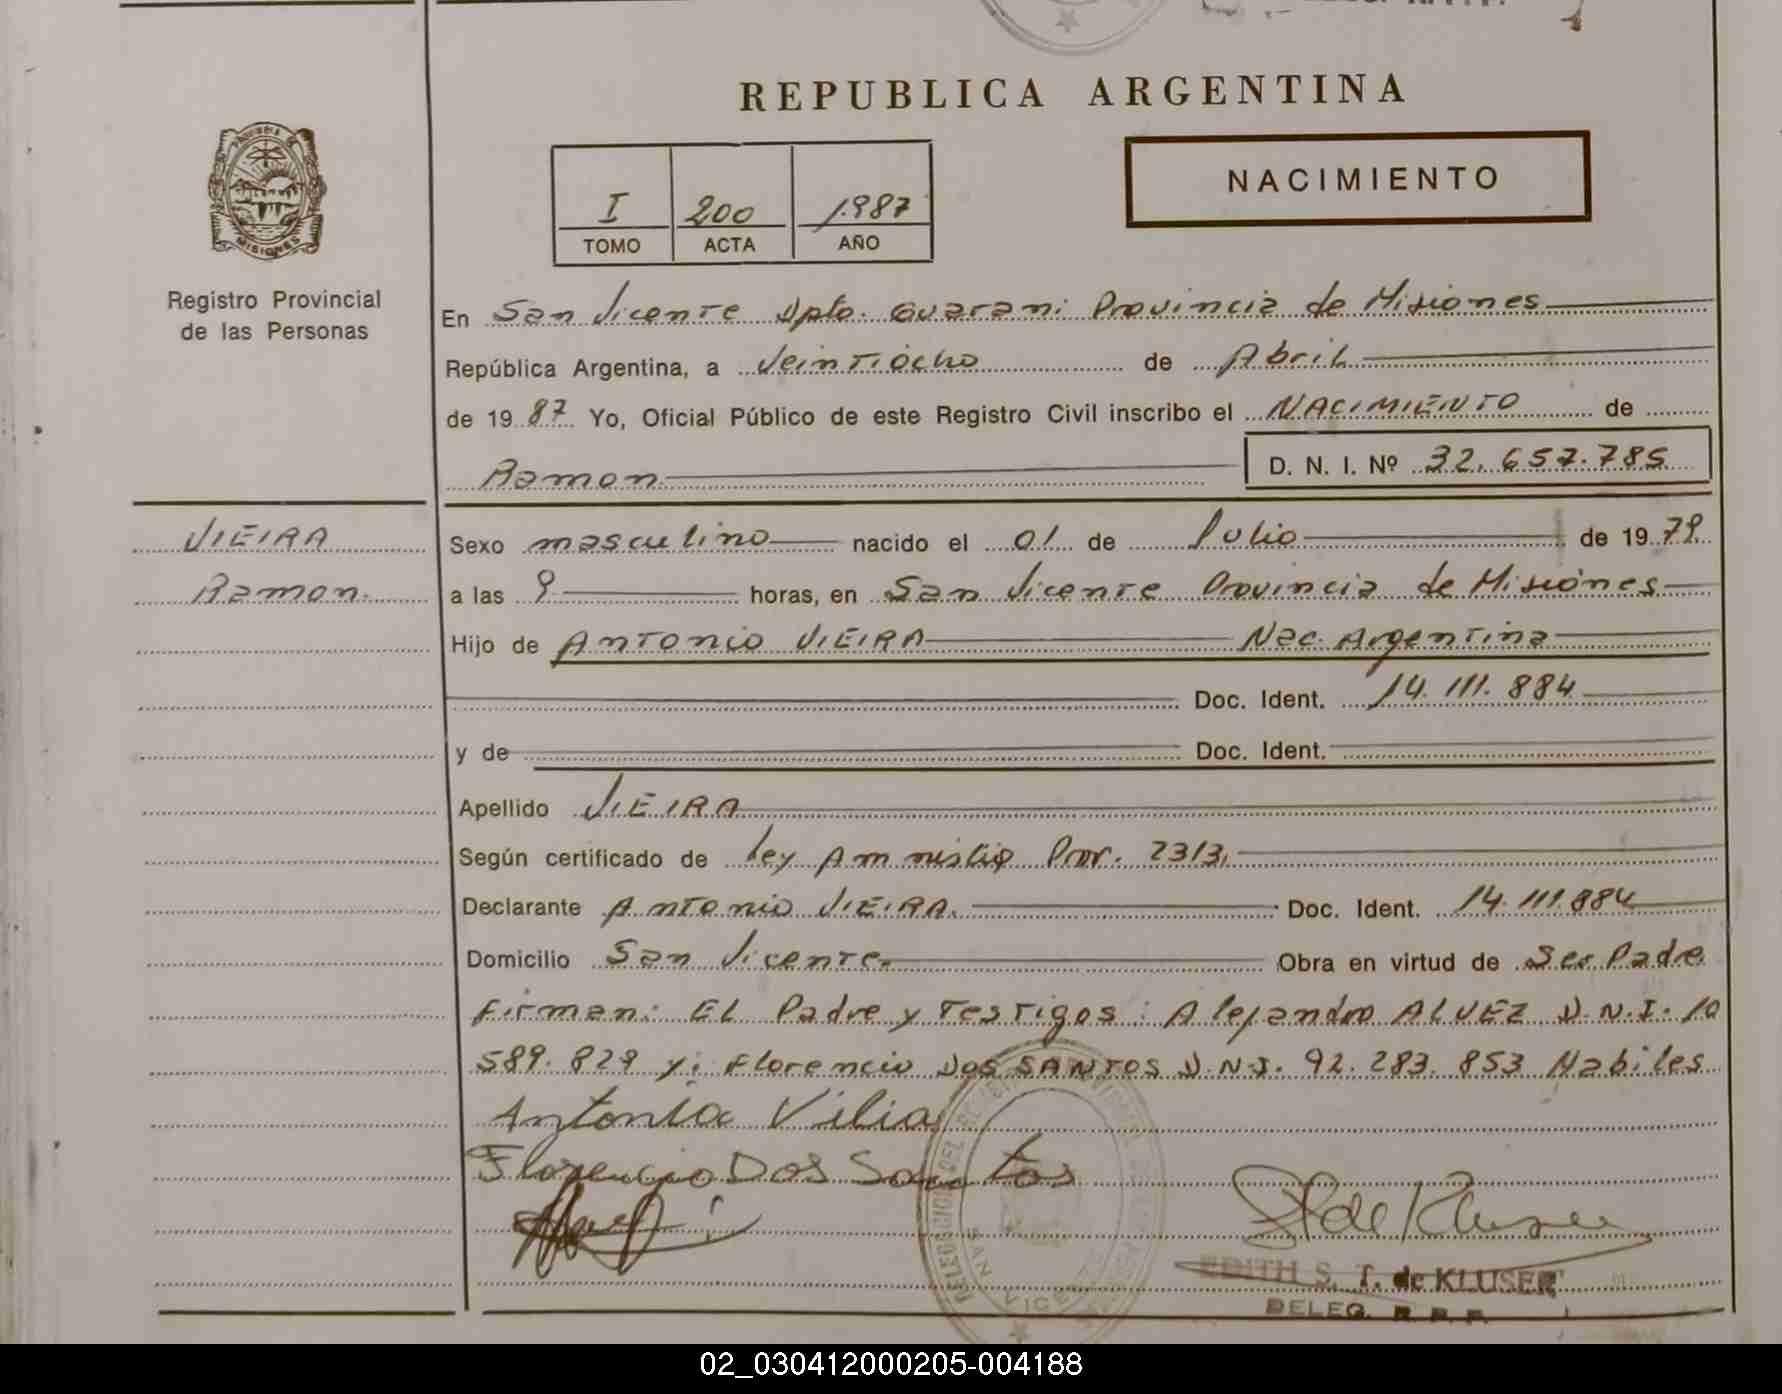 REPUBLICA ARGENTINA
NACIMIENTO
I 200 1987
TOMO ACTA AÑO
MISIONES
Registro Provincial
de las Personas
En San Vicente Dpto. Guarani Provincia de Misiones
República Argentina, a Veintiocho de Abril
de 1987 Yo, Oficial Público de este Registro Civil inscribo el NACIMIENTO de
Ramon D. N. I. Nº 32.657.785
VIEIRA
Ramon.
Sexo masculino nacido el 01 de Julio de 1979
a las 9 horas, en San Vicente Provincia de Misiones
Hijo de Antonio VIEIRA Nac. Argentina
Doc. Ident. 14.111.884
y de Doc. Ident.
Apellido VIEIRA
Según certificado de Ley Amnistia Prov. 2313.
Declarante Antonio VIEIRA. Doc. Ident. 14.111.884
Domicilio San Vicente. Obra en virtud de Ser Padre
Firman: EL Padre y Testigos: Alejandro ALVEZ D.N.I. 10
589.829 y: Florencio DOS SANTOS D.N.I. 92.283.853 Habiles
Antonia Vilia
Florencio Dos Santos
de Kluser
EDITH S. T. de KLUSER
DELEG. R. P. P.
DELEGACION DEL
SAN VICENTE
02_030412000205-004188